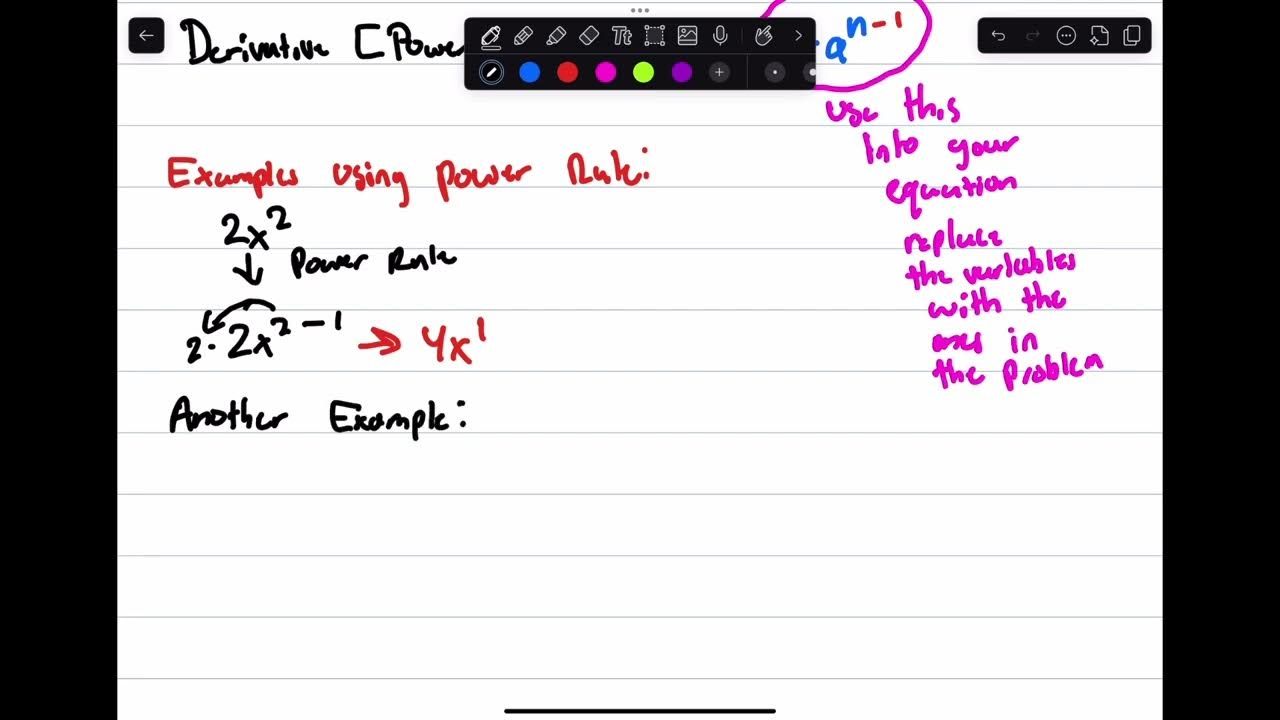 Derivative [Power
· a^n-1
Tt
use this
into your
equation
replace
the variables
with the
ones in
the problem
Examples using power Rule:
2x^2
↓ Power Rule
2 · 2x^2-1 → 4x^1
Another Example: